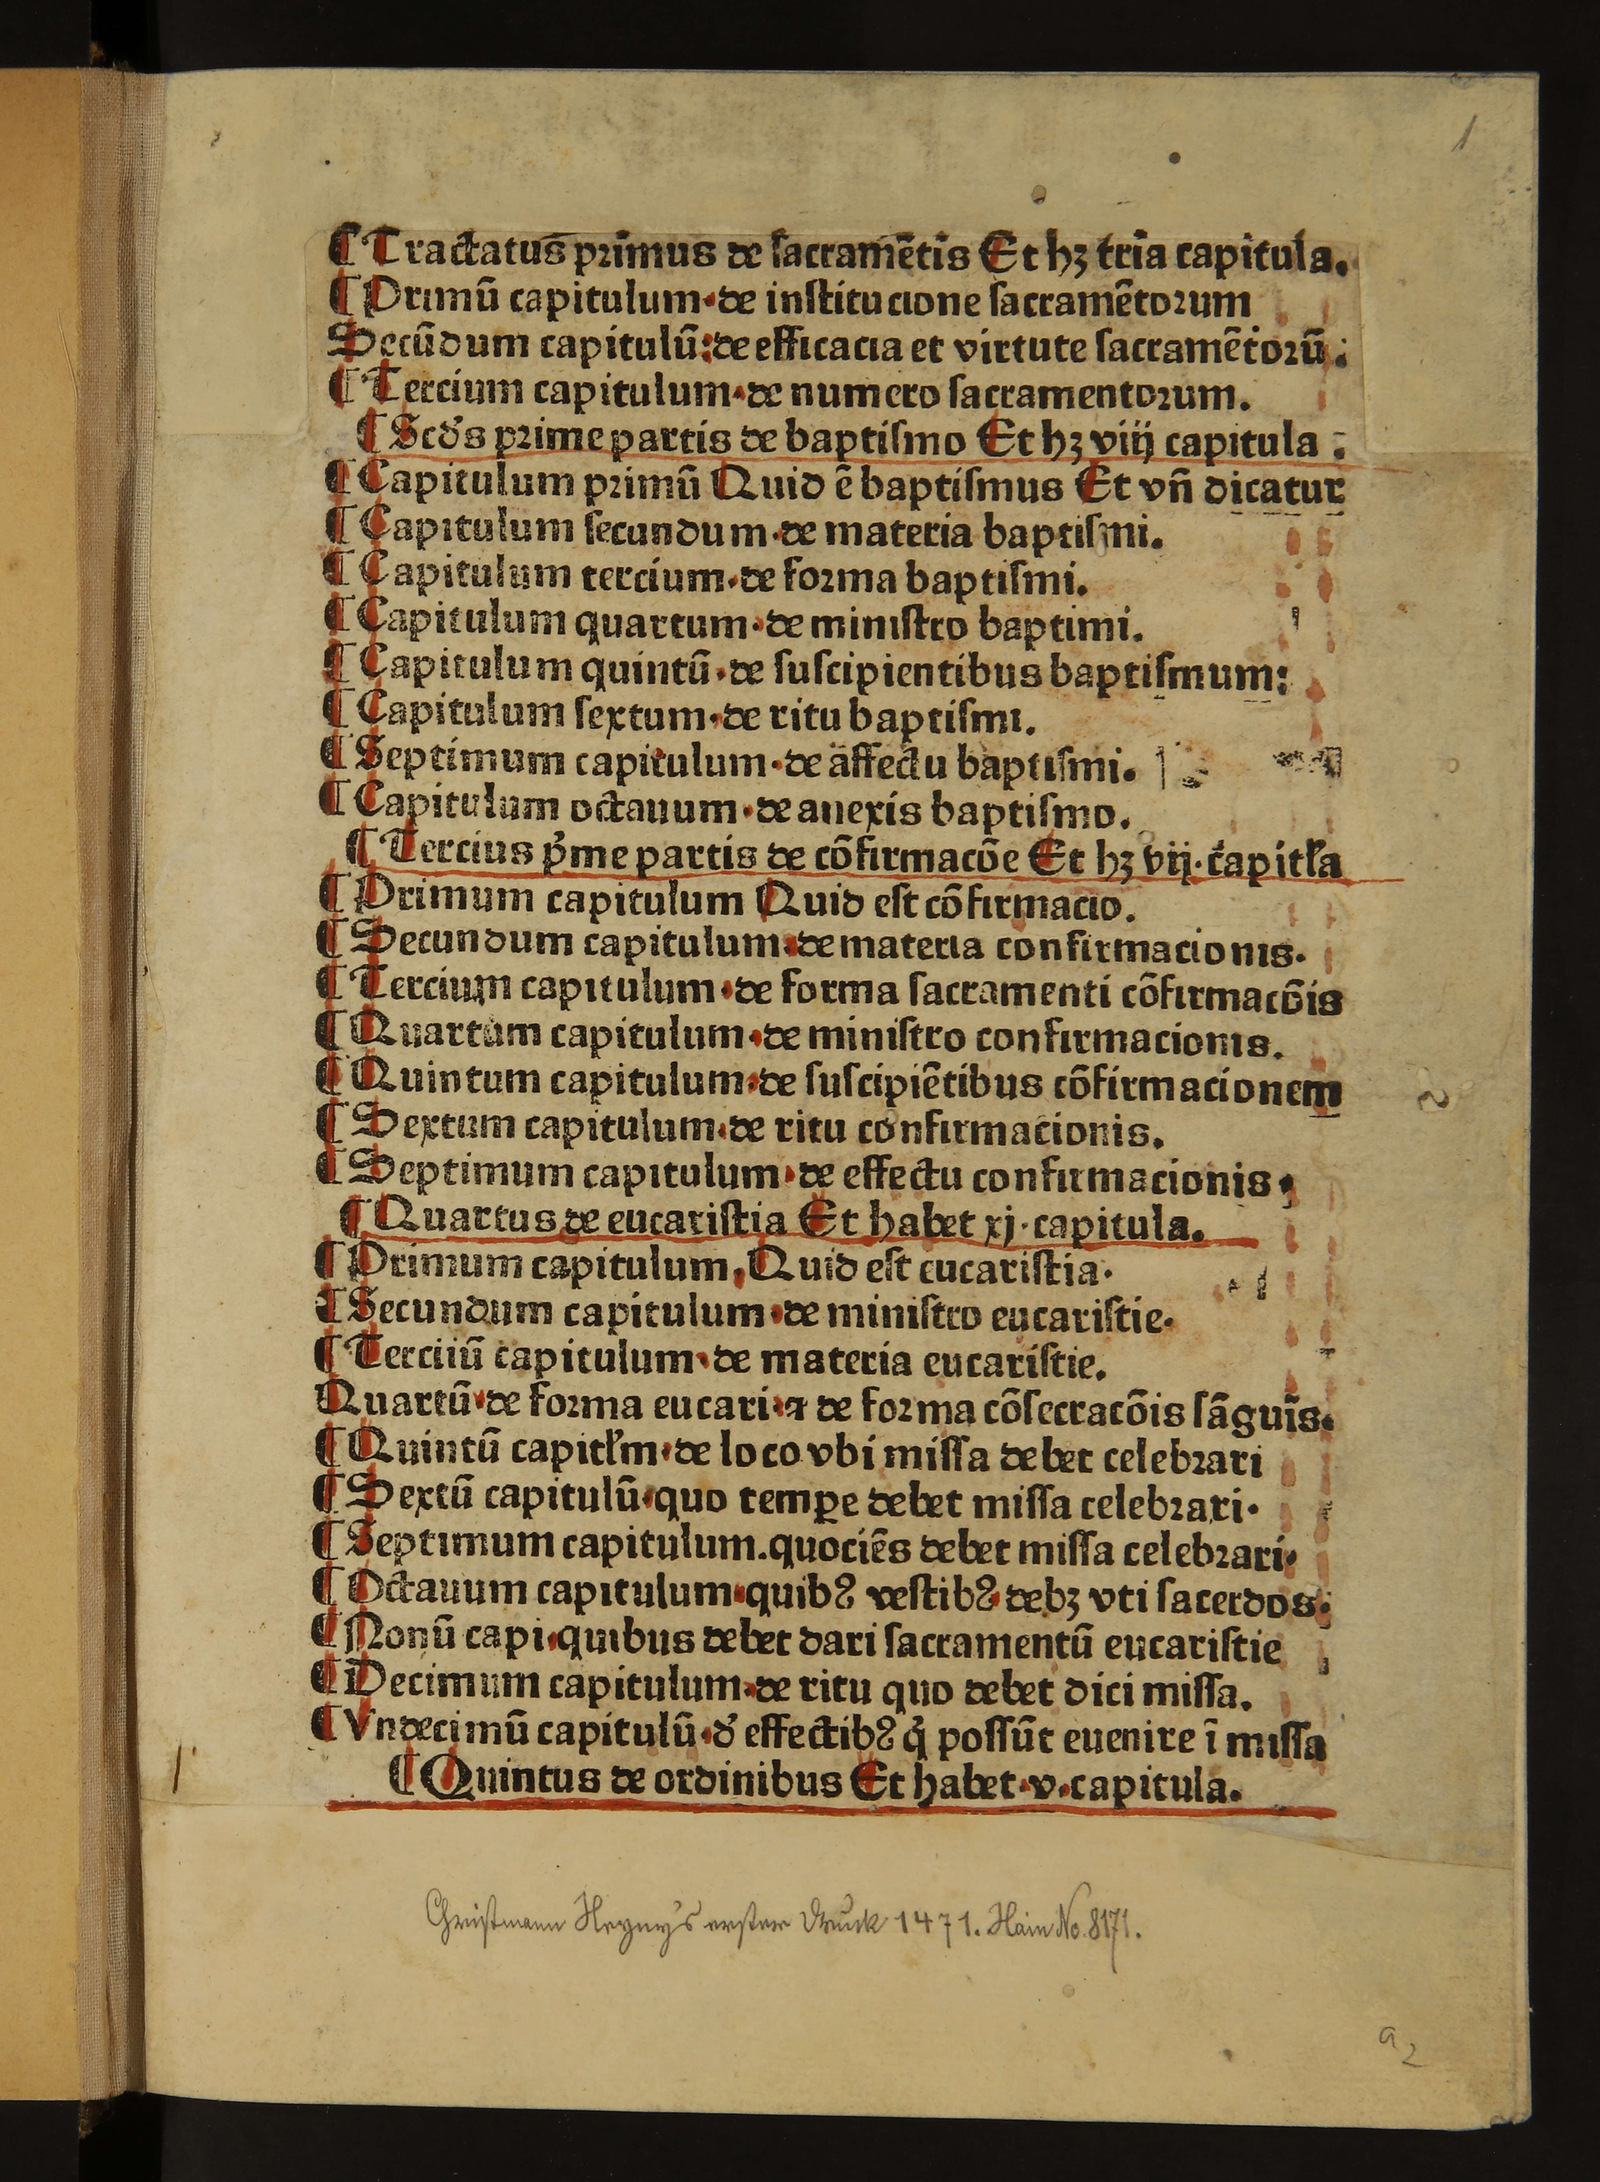 1
¶ Tractatus primus de sacramētis Et hꝫ tria capitula.
¶ Primū capitulum·de institucione sacramētorum
Secūdum capitulū:de efficacia et virtute sacramētorū:
¶ Tercium capitulum·de numero sacramentorum.
¶ Scd̓s prime partis de baptismo Et hꝫ viij capitula :
¶ Capitulum primū Quid ē baptismus Et vñ dicatur
¶ Capitulum secundum·de materia baptismi.
¶ Capitulum tercium·de forma baptismi.
¶ Capitulum quartum·de ministro baptimi.
¶ Capitulum quintū·de suscipientibus baptismum:
¶ Capitulum sextum·de ritu baptismi.
¶ Septimum capitulum·de affectu baptismi.
¶ Capitulum octauum·de anexis baptismo.
¶ Tercius p̓me partis de cōfirmacōe Et hꝫ vij·capitl̓a
¶ Primum capitulum Quid est cōfirmacio.
¶ Secundum capitulum·de materia confirmacionis·
¶ Tercium capitulum·de forma sacramenti cōfirmacōis
¶ Quartum capitulum·de ministro confirmacionis.
¶ Quintum capitulum·de suscipiētibus cōfirmacionem
¶ Sextum capitulum·de ritu confirmacionis.
¶ Septimum capitulum·de effectu confirmacionis·
¶ Quartus de eucaristia Et habet xj·capitula.
¶ Primum capitulum, Quid est eucaristia·
¶ Secundum capitulum·de ministro eucaristie·
¶ Terciiū capitulum·de materia eucaristie.
Quartū·de forma eucari·⁊ de forma cōsecracōis sāguīs·
¶ Quintū capitl̓m·de loco vbi missa debet celebrari
¶ Sextū capitulū·quo tempe debet missa celebrari·
¶ Septimum capitulum.quociēs debet missa celebrari·
¶ Octauum capitulum·quibꝰ vestibꝰ debꝫ vti sacerdos·
¶ Nonū capi·quibus debet dari sacramentū eucaristie
¶ Decimum capitulum·de ritu quo debet dici missa.
¶ Vndecimū capitulū·d̓ effectibꝰ q̓ possūt euenire ī missa
¶ Quintus de ordinibus Et habet·v·capitula.
Christmann Heyny's erster Druck 1471. Hain No. 8171.
a2